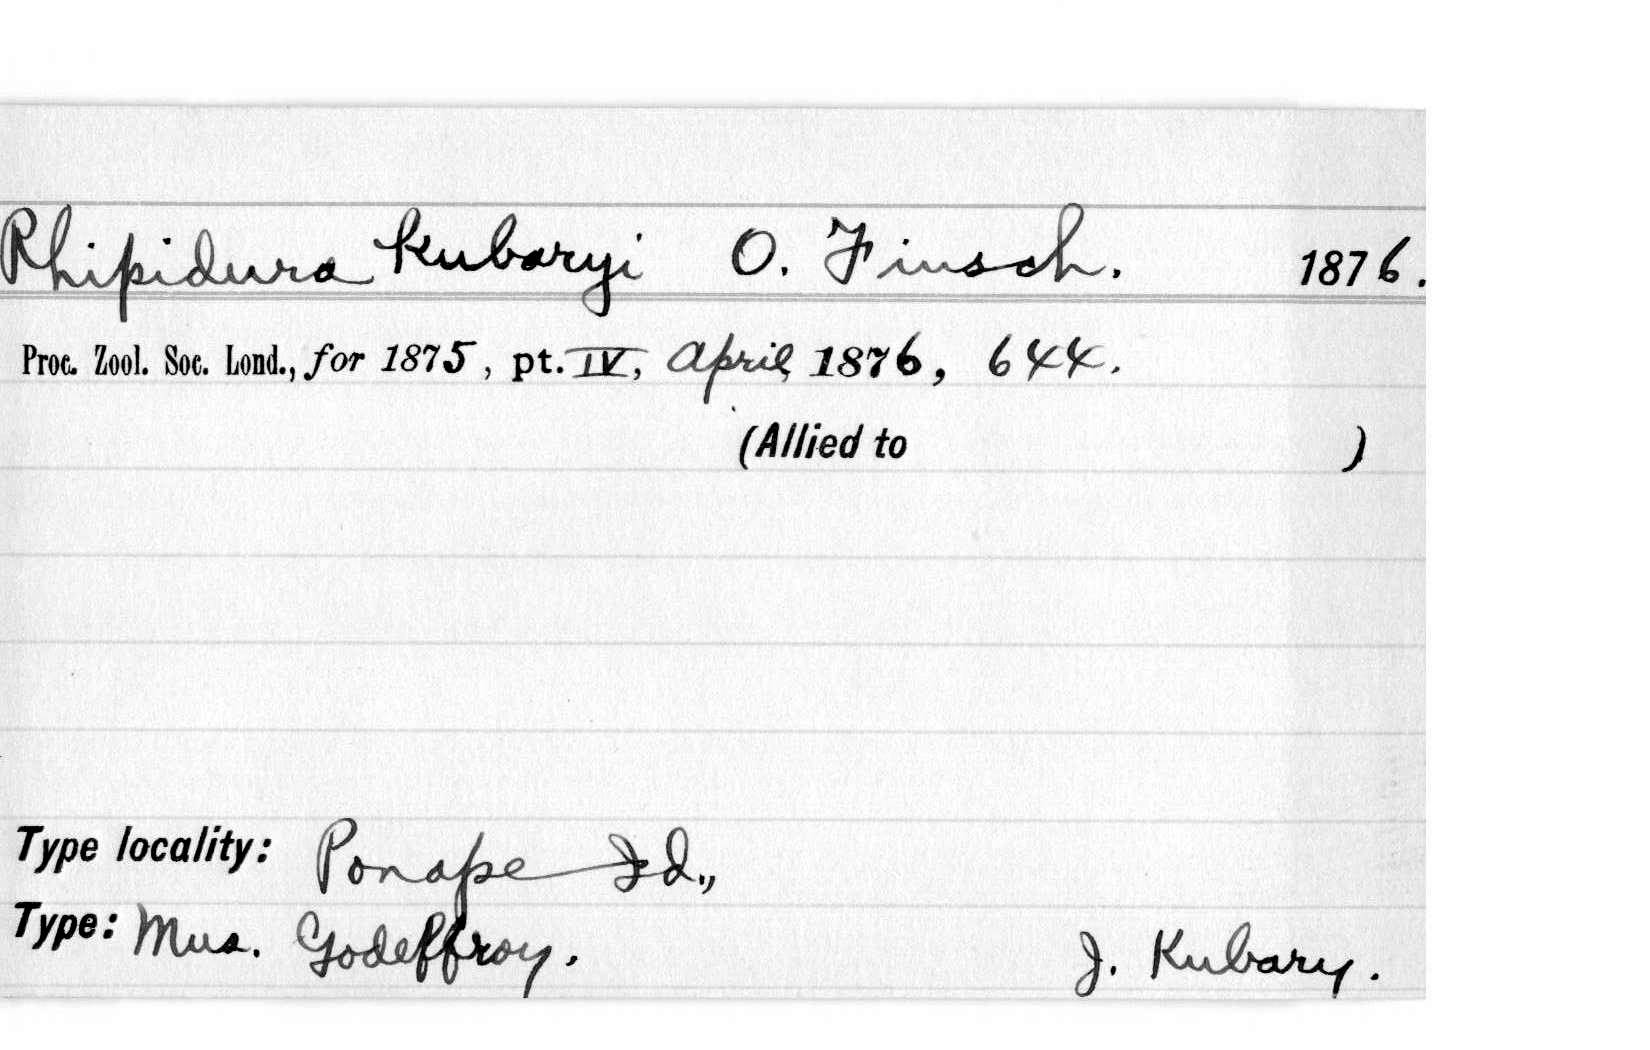 Rhipidura kubaryi O. Finsch. 1876.
Proc. Zool. Soc. Lond., for 1875, pt. IV, April, 1876, 644.
(Allied to )
Type locality: Ponape Id.,
Type: Mus. Godeffroy. J. Kubary.